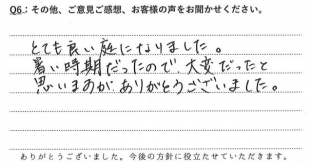 Q6：その他、ご意見ご感想、お客様の声をお聞かせください。
とても良い庭になりました。
暑い時期だったので、大変だったと
思いますが、ありがとうございました。
ありがとうございました。今後の方針に役立たせていただきます。